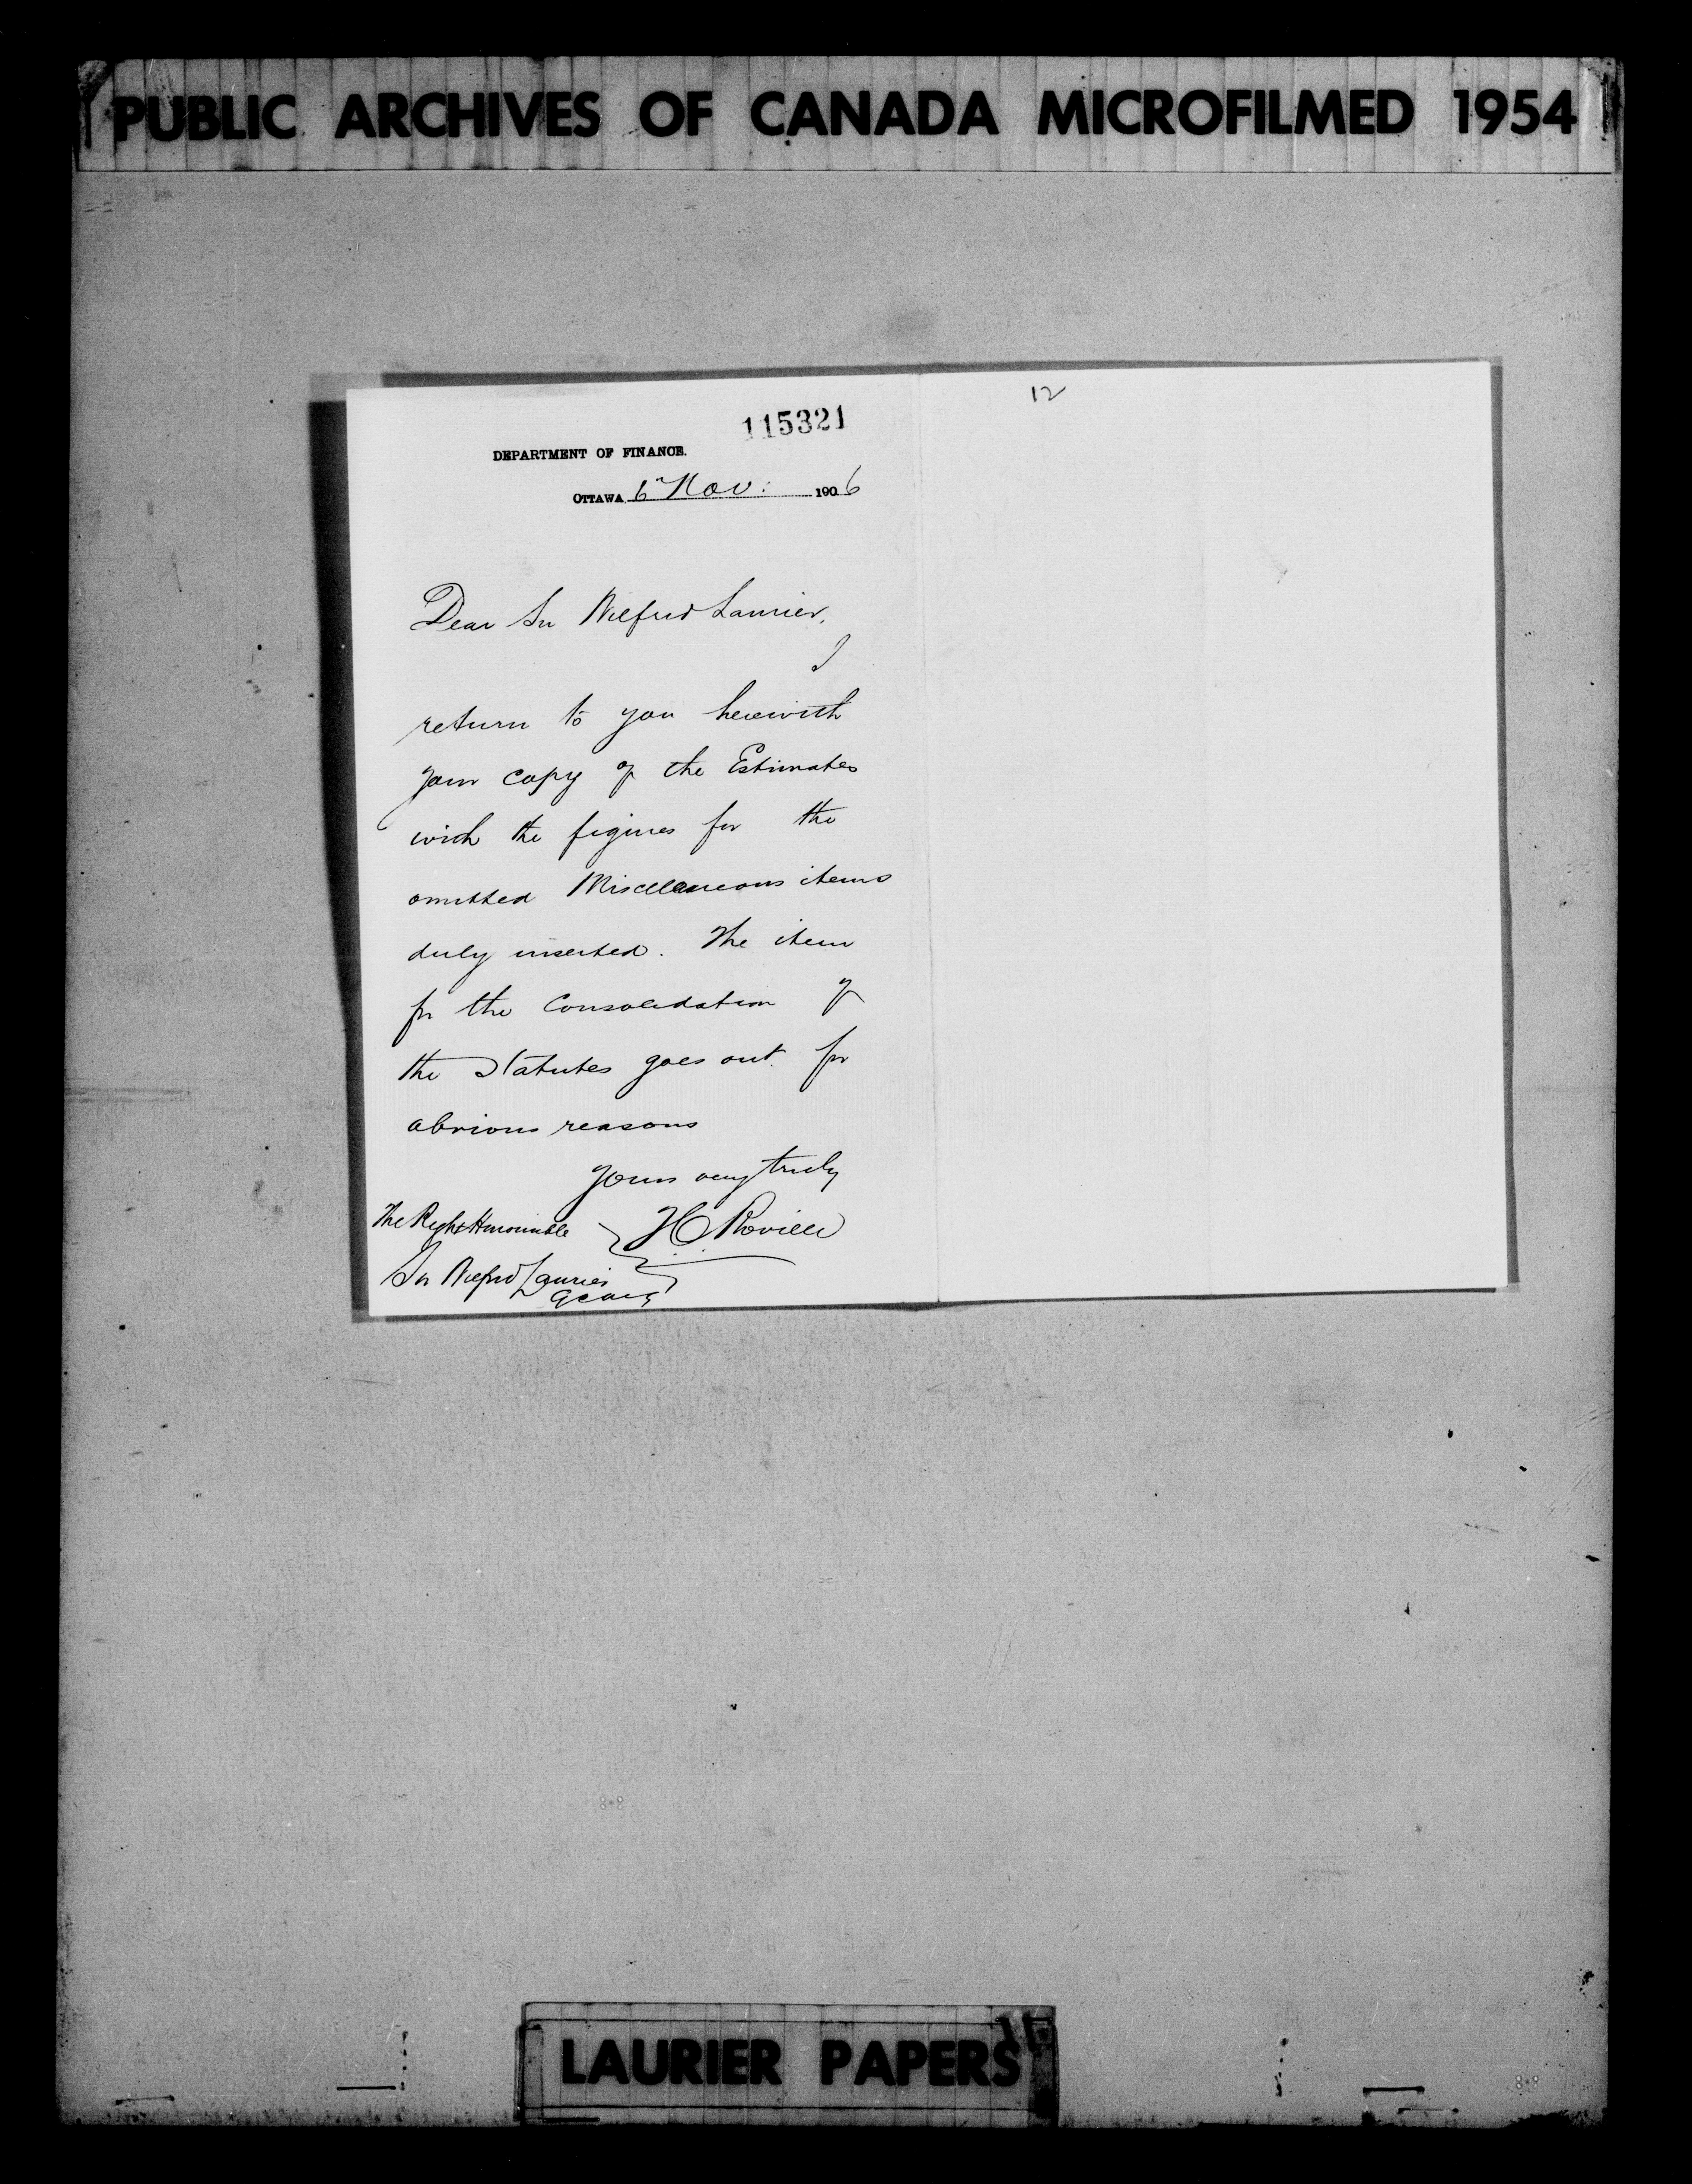 PUBLIC ARCHIVES OF CANADA MICROFILMED 1954
12
115321
DEPARTMENT OF FINANCE.
OTTAWA 6th Nov: 1906
Dear Sir Wilfrid Laurier,
I
return to you herewith
your copy of the Estimates
with the figures for the
omitted Miscellaneous items
duly inserted. The item
for the Consolidation of
the Statutes goes out for
obvious reasons
Yours very truly
The Right Honourable
Sir Wilfrid Laurier
GCMG
LAURIER PAPERS